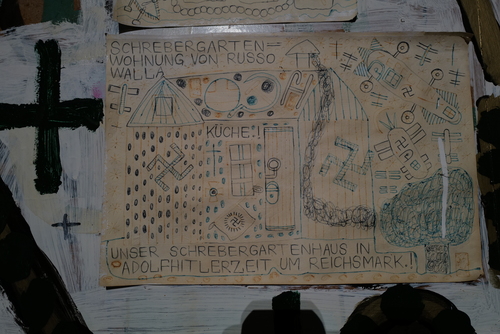 SCHREBERGARTEN=
WOHNUNG VON RUSSO
WALLA
KÜCHE.!
UNSER SCHREBERGARTENHAUS IN
ADOLPHITLERZEIT UM REICHSMARK.!